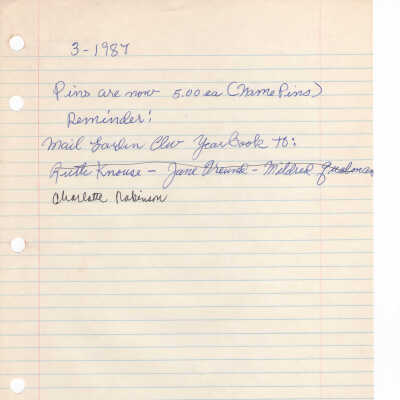 3-1987
Pins are now 5.00 ea (Name Pins)
Reminder:
Mail Garden Club Year Book to:
Ruth Knouse - Jane - Mildred
Charlotte Robinson